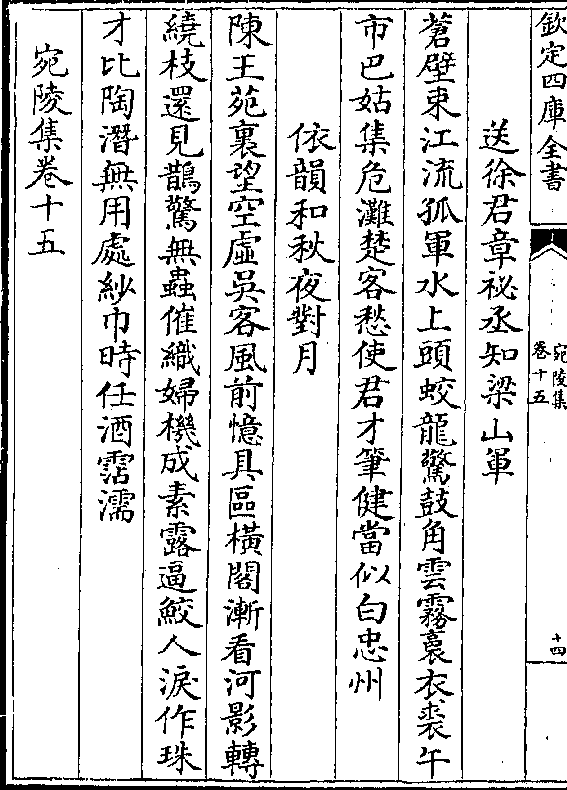 欽定四庫全書
宛陵集
卷十五
十四
送徐君章祕丞知梁山軍
蒼壁束江流孤軍水上頭蛟龍驚鼓角雲霧裛衣裘午
市巴姑集危灘楚客愁使君才筆健當似白忠州
依韻和秋夜對月
陳王苑裏望空虛吳客風前憶具區橫閣漸看河影轉
繞枝還見鵲驚無蟲催織婦機成素露逼鮫人淚作珠
才比陶潛無用處紗巾時任酒霑濡
宛陵集卷十五